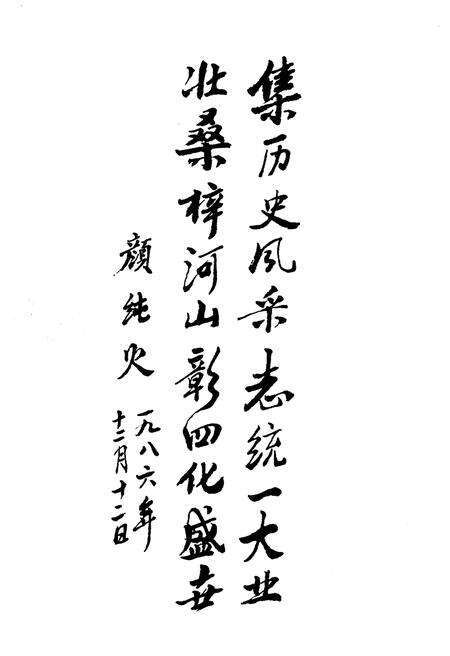 集历史风采志统一大业
壮桑梓河山彰四化盛世
颜纯火
一九八六年
十二月十二日